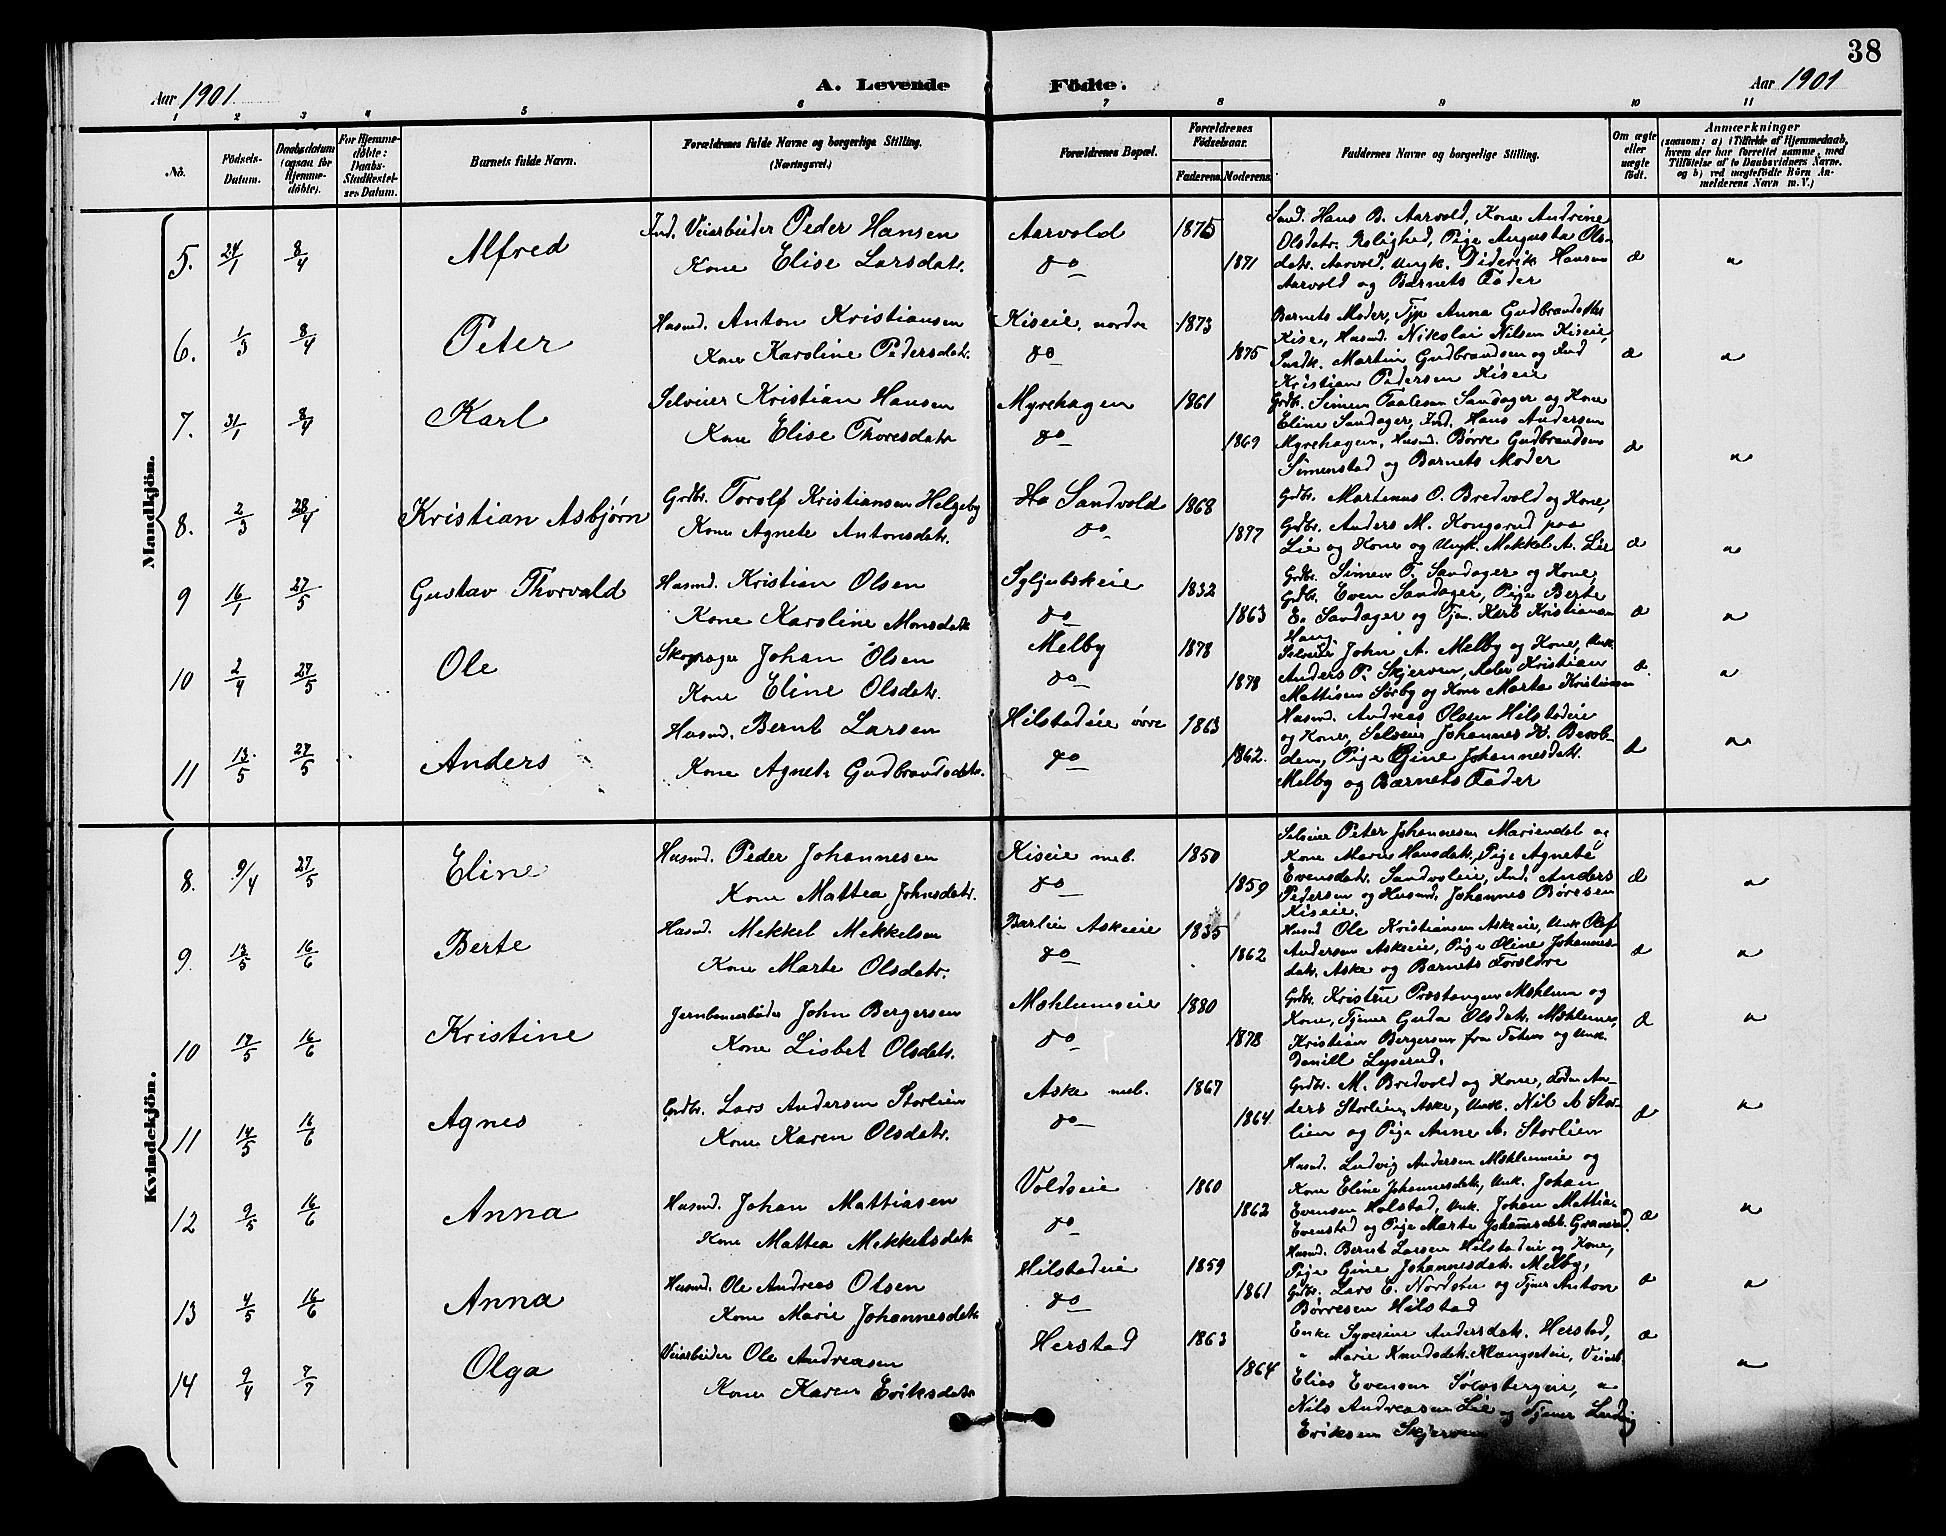 38
Aar 1901 A. Levende Födte. Aar 1901
1 2 3 4 5 6 7 8 9 10 11
No.
Födsels-
Datum.
Daabsdatum
(ogsaa for
Hjemme-
döbte).
For Hjemme-
döbte:
Daabs-
Stadfæstel-
ses Datum.
Barnets fulde Navn.
Forældrenes fulde Navne og borgerlige Stilling.
(Næringsvei.)
Forældrenes Bopæl.
Forældrenes
Födselsaar.
Faderens. Moderens.
Faddernes Navne og borgerlige Stilling.
Om ægte
eller
uægte
födt.
Anmærkninger
(saasom: a) i Tilfælde af Hjemmedaab,
hvem der har forrettet samme, med
Tilföielse af to Daabsvidners Navne.
og b) ved uægtefödte Börn An-
melderens Navn m. V.)
Mandkjön.
5. 24/1 8/4 Alfred
Ind. Veiarbeider Peder Hansen
Kone Elise Larsdatr.
Aarvold
do
1875
1871
Hans B. Aarvold, Kone Andrine
Olsdatr. Rolighed, Pige Augusta Ols-
datr. Aarvold, Ungk. Diderik Hansen
Aarvold og Barnets Fader
æ
6. 1/3 8/4 Peter
Husmd. Anton Kristiansen
Kone Karoline Pedersdatr.
Kiseie, nordre
do
1873
1875
Barnets Moder, Anna Gudbrandsdtr
Kise, Husmd. Nikolai Nilsen Kiseie,
Martin Gudbrandsen og Ind
Kristian Pedersen Kiseie
æ
7. 31/1 8/4 Karl
Selveier Kristian Hansen
Kone Elise Thoresdatr
Myrehagen
do
1861
1869
Grdbr. Simen Sandager og Kone
Eline Sandager, Ind. Hans Andersen
Myrehagen, Husmd. Børre Gudbrandsen
Simenstad og Barnets Moder
æ
8. 2/3 28/4 Kristian Asbjørn
Grdbr. Torolf Kristiansen Helgeby
Kone Agnete Antonsdatr.
Sandvold
do
1868
1877
Grdbr. Martinus O. Bredvold og Kone,
Grdbr. Anders M. Kongsrud paa
Lie og Kone og Ungk. Mekkel A. Lie
æ
9 16/1 27/5 Gustav Thorvald
Husmd. Kristian Olsen
Kone Karoline Monsdatr
Sgljubskeie
do
1832
1863
Grdbr. Simen T. Sandager og Kone,
Grdbr. Even Sandager, Pige Berte
E. Sandager og Tjen. Karl Kristiansen
Haug.
æ
10 2/4 27/5 Ole
Johan Olsen
Kone Eline Olsdatr.
Melby
do
1878
1878
Selveier John A. Melby og Kone, Unk.
Anders P. Skjerven, Kristian
Mattisen Sørby og Kone Marta Kristiansen
æ
11 13/5 27/5 Anders
Husmd. Bernt Larsen
Kone Agnete Gudbrandsdatr.
Hilstadeie øvre
do
1863
1862.
Husmd. Andreas Olsen Hilstadeie
og Kone, Selveier Johannes H.
den, Pige Gine Johannesdatr.
Melby og Barnets Fader
æ
Kvindekjön.
8. 9/4 27/5 Eline
Husmd. Peder Johannesen
Kone Mattea Johnsdatr.
Kiseie mel.
do
1850
1859
Selveier Peter Johannesen Mariendal og
Kone Marie Hansdatr., Pige Agnete
Evensdatr. Sandvoleie, Ind. Anders
Pedersen og Husmd. Johannes Børesen
Kiseie.
æ
9. 13/5 16/6 Berte
Husmd. Mekkel Mekkelsen
Kone Marte Olsdatr.
Askeeie
do
1835
1862
Husmd Ole Kristiansen Askeeie, Unk Olaf
Andersen Askeeie, Pige Oline Johannes-
datr. Aske og Barnets Forældre
æ
10 17/5 16/6 Kristine
Jernbanearbeider John Bergersen
Kone Lisbet Olsdatr.
Mæhlumseie
do
1880
1878
Grdbr. Kristen Præstangen Mæhlum og
Kone, Tjener Gerda Olsdatr. Mæhlum,
Kristian Bergersen fra Toten og Unk.
Daniel Lyserud.
æ
11 14/5 16/6 Agnes
Grdbr. Lars Andersen Storlien
Kone Karen Olsdatr.
Aske mel.
do
1867
1864
Grdbr. M. Bredvold og Kone, An-
ders Storlien, Aske, Unk. Nil A Stor-
lien og Pige Anne A. Storlien
æ
12 9/5 16/6 Anna
Husmd Johan Mattiasen
Kone Mattea Mekkelsdatr
Voldseie
do
1860
1862
Husmd. Ludvig Andersen Mæhlumeie og
Kone Eline Johannesdatr., Unk. Johan
Evensen Holstad, Unk. Johan Mattia-
Evenstad og Pige Marte Johannesdatr.
æ
13 4/5 16/6 Anna
Husmd. Ole Andreas Olsen
Kone Marie Johannesdatr
Hilstadeie
do
1859
1861
Husmd. Bernt Larsen Hilstadeie og Kone,
Pige Gine Johannesdatr. Melby,
Grdbr. Lars E. og Tjener Anton
Børresen Hilstad
æ
14 9/4 7/7 Olga
Veiarbeider Ole Andreasen
Kone Karen Eriksdatr
Herstad
1863
1864
Enke Syverine Andersdatr. Herstad,
" Marie Knudsdatr. Veiarb.
Elias Evensen
Nils Andreasen Lie og Tjener Ludvig
Eriksen Skjerven
æ